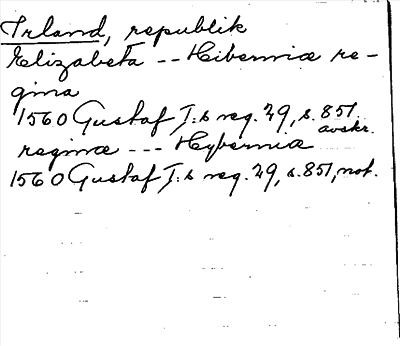 Irland, republik
Elizabeta -- Hiberniæ re-
gina
1560 Gustaf I:s reg. 29, s. 851.
avskr.
reginæ --- Hyberniæ
1560 Gustaf I:s reg. 29, s. 851, not.